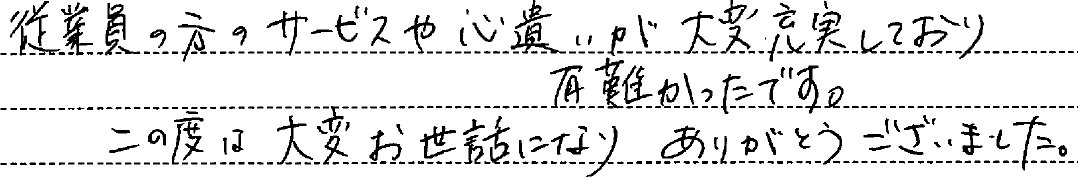 従業員の方のサービスや心遣いが大変充実しており
有難かったです。
この度は大変お世話になりありがとうございました。